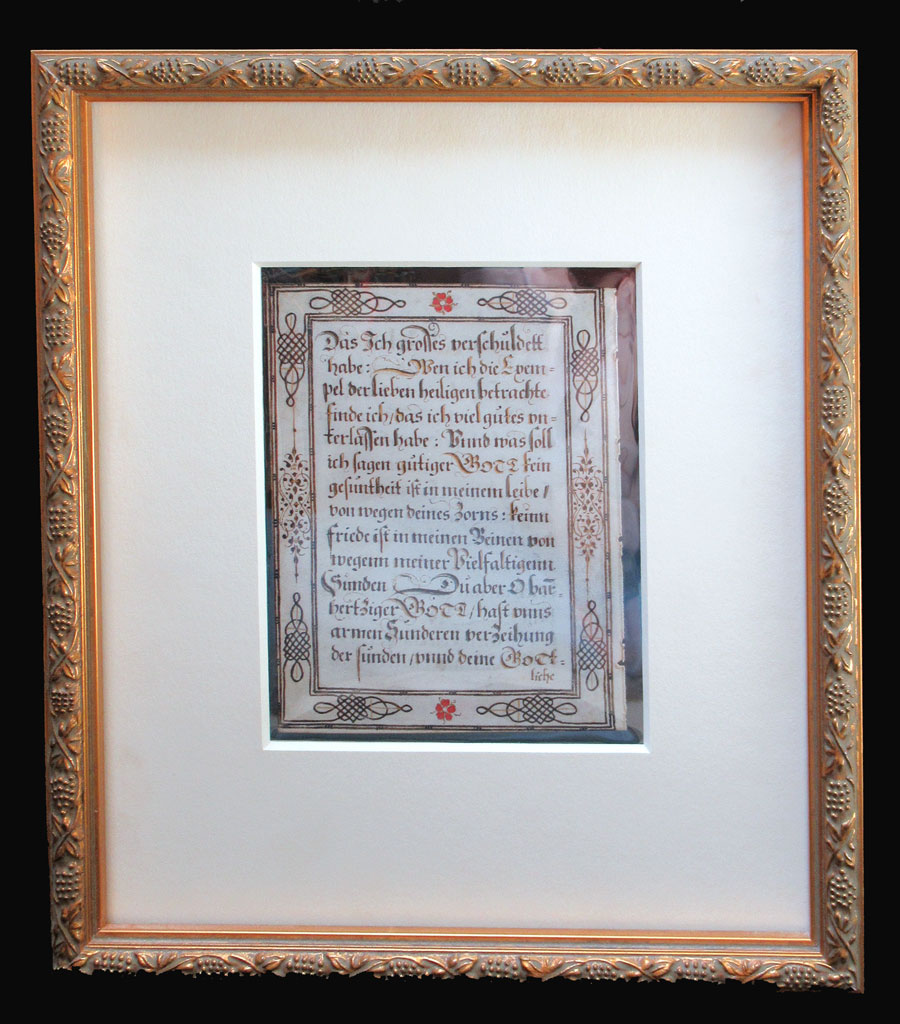 Das Ich grosses verschuldett
habe: Wen ich die Exem-
pel der lieben heiligen betrachte
finde ich/das ich viel gutes vn-
terlassen habe: Vnnd was soll
ich sagen gutiger GOTT kein
gesuntheit ist in meinem leibe/
von wegen deines Zorns: keinn
friede ist in meinen Beinen von
wegenn meiner Vielfaltigenn
Sunden Du aber O bar̄-
hertziger GOTT/hast vnns
armen Sunderen verzeihung
der sunden/vnnd deine GOTT-
liche